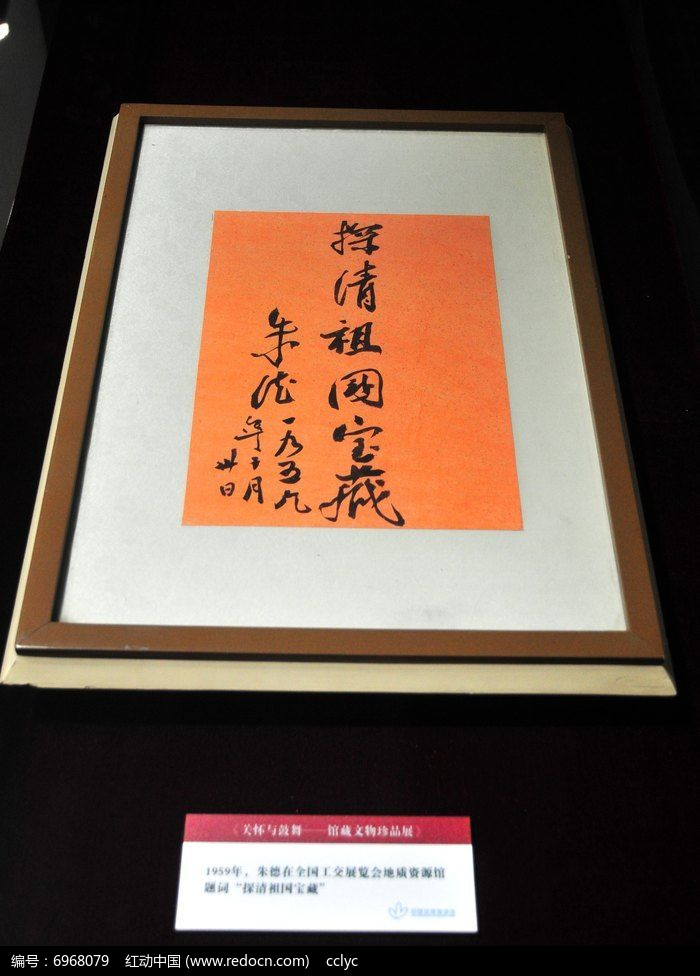 探清祖國宝藏
朱德一九五九
年十月
卅日
《关怀与鼓舞——馆藏文物珍品展》
1959年，朱德在全国工交展览会地质资源馆
题词“探清祖国宝藏”
编号：6968079 红动中国 (www.redocn.com) cclyc